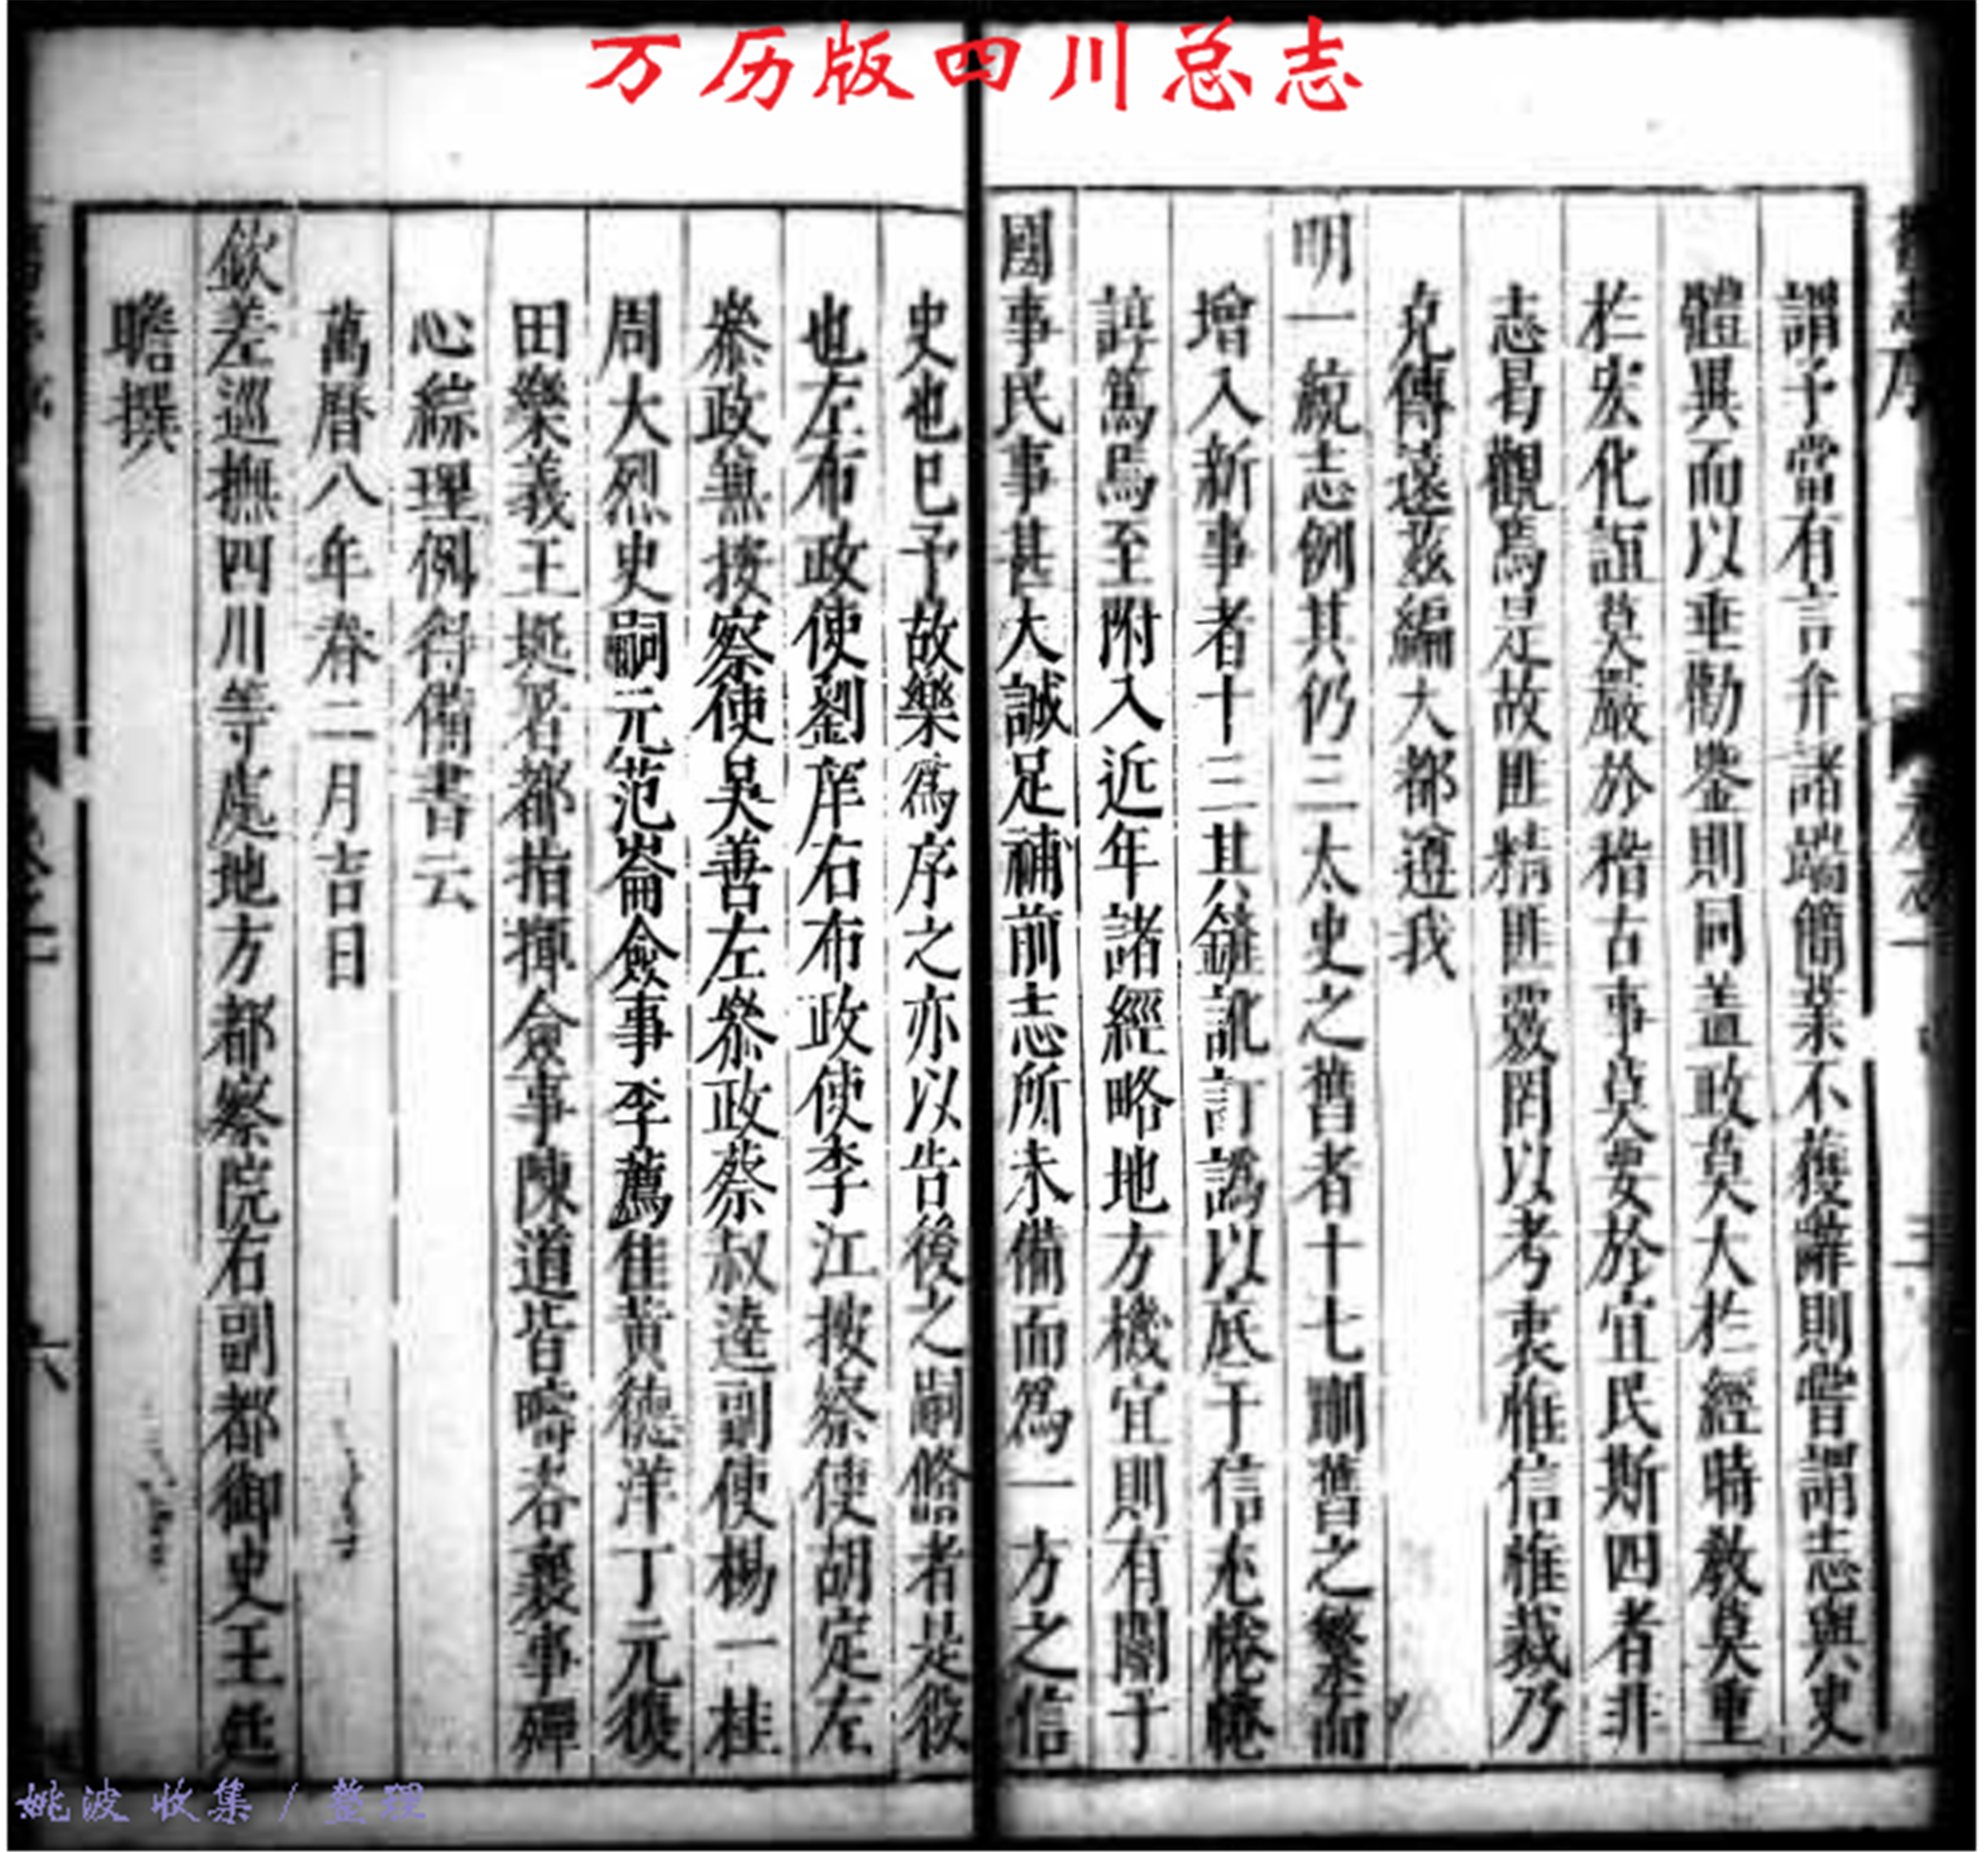 万历版四川总志
謂予當有言弁諸端簡某不獲辭則嘗謂志與史
體異而以垂勸鑒則同盖政莫大於經時教莫重
於宏化誼莫嚴於稽古事莫要於宜民斯四者非
志曷觀焉是故匪精匪覈罔以考衷惟信惟裁乃
克傳遠茲編大都遵我
明一統志例其仍三太史之舊者十七刪舊之繁而
增入新事者十三其讎訛訂譌以底于信尤惓惓
諄篤焉至附入近年諸經略地方機宜則有關于
國事民事甚大誠足補前志所未備而為一方之信
史也已予故樂為序之亦以告後之嗣脩者是役
也左布政使劉庠右布政使李江按察使胡定左
叅政無按察使吳善左叅政蔡叔逵副使楊一桂
周大烈史嗣元范崙僉事李薦佳黃德洋丁元復
田樂義王埏署都指揮僉事陳道皆疇咨襄事殫
心綜理例得備書云
萬曆八年春二月吉日
欽差巡撫四川等處地方都察院右副都御史王廷
瞻撰
六
姚波 收集 / 整理